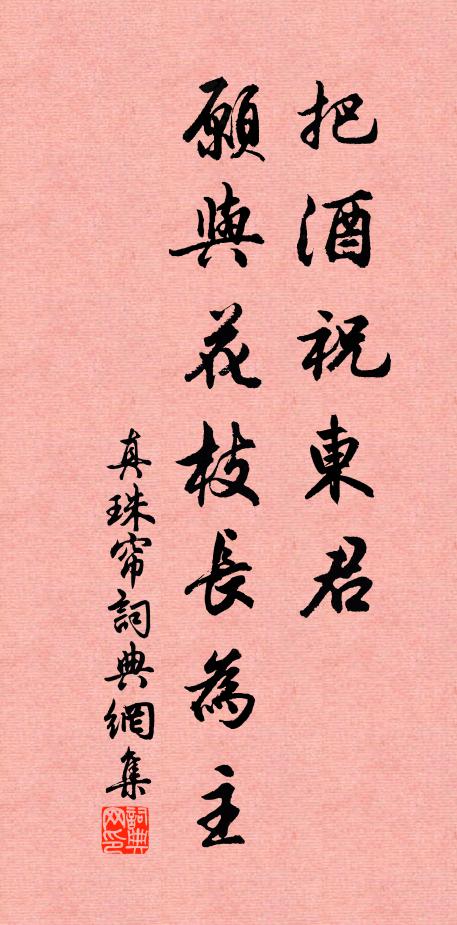 把酒祝東君
願與花枝長為主
真珠帘詞典網集
詞典
网印